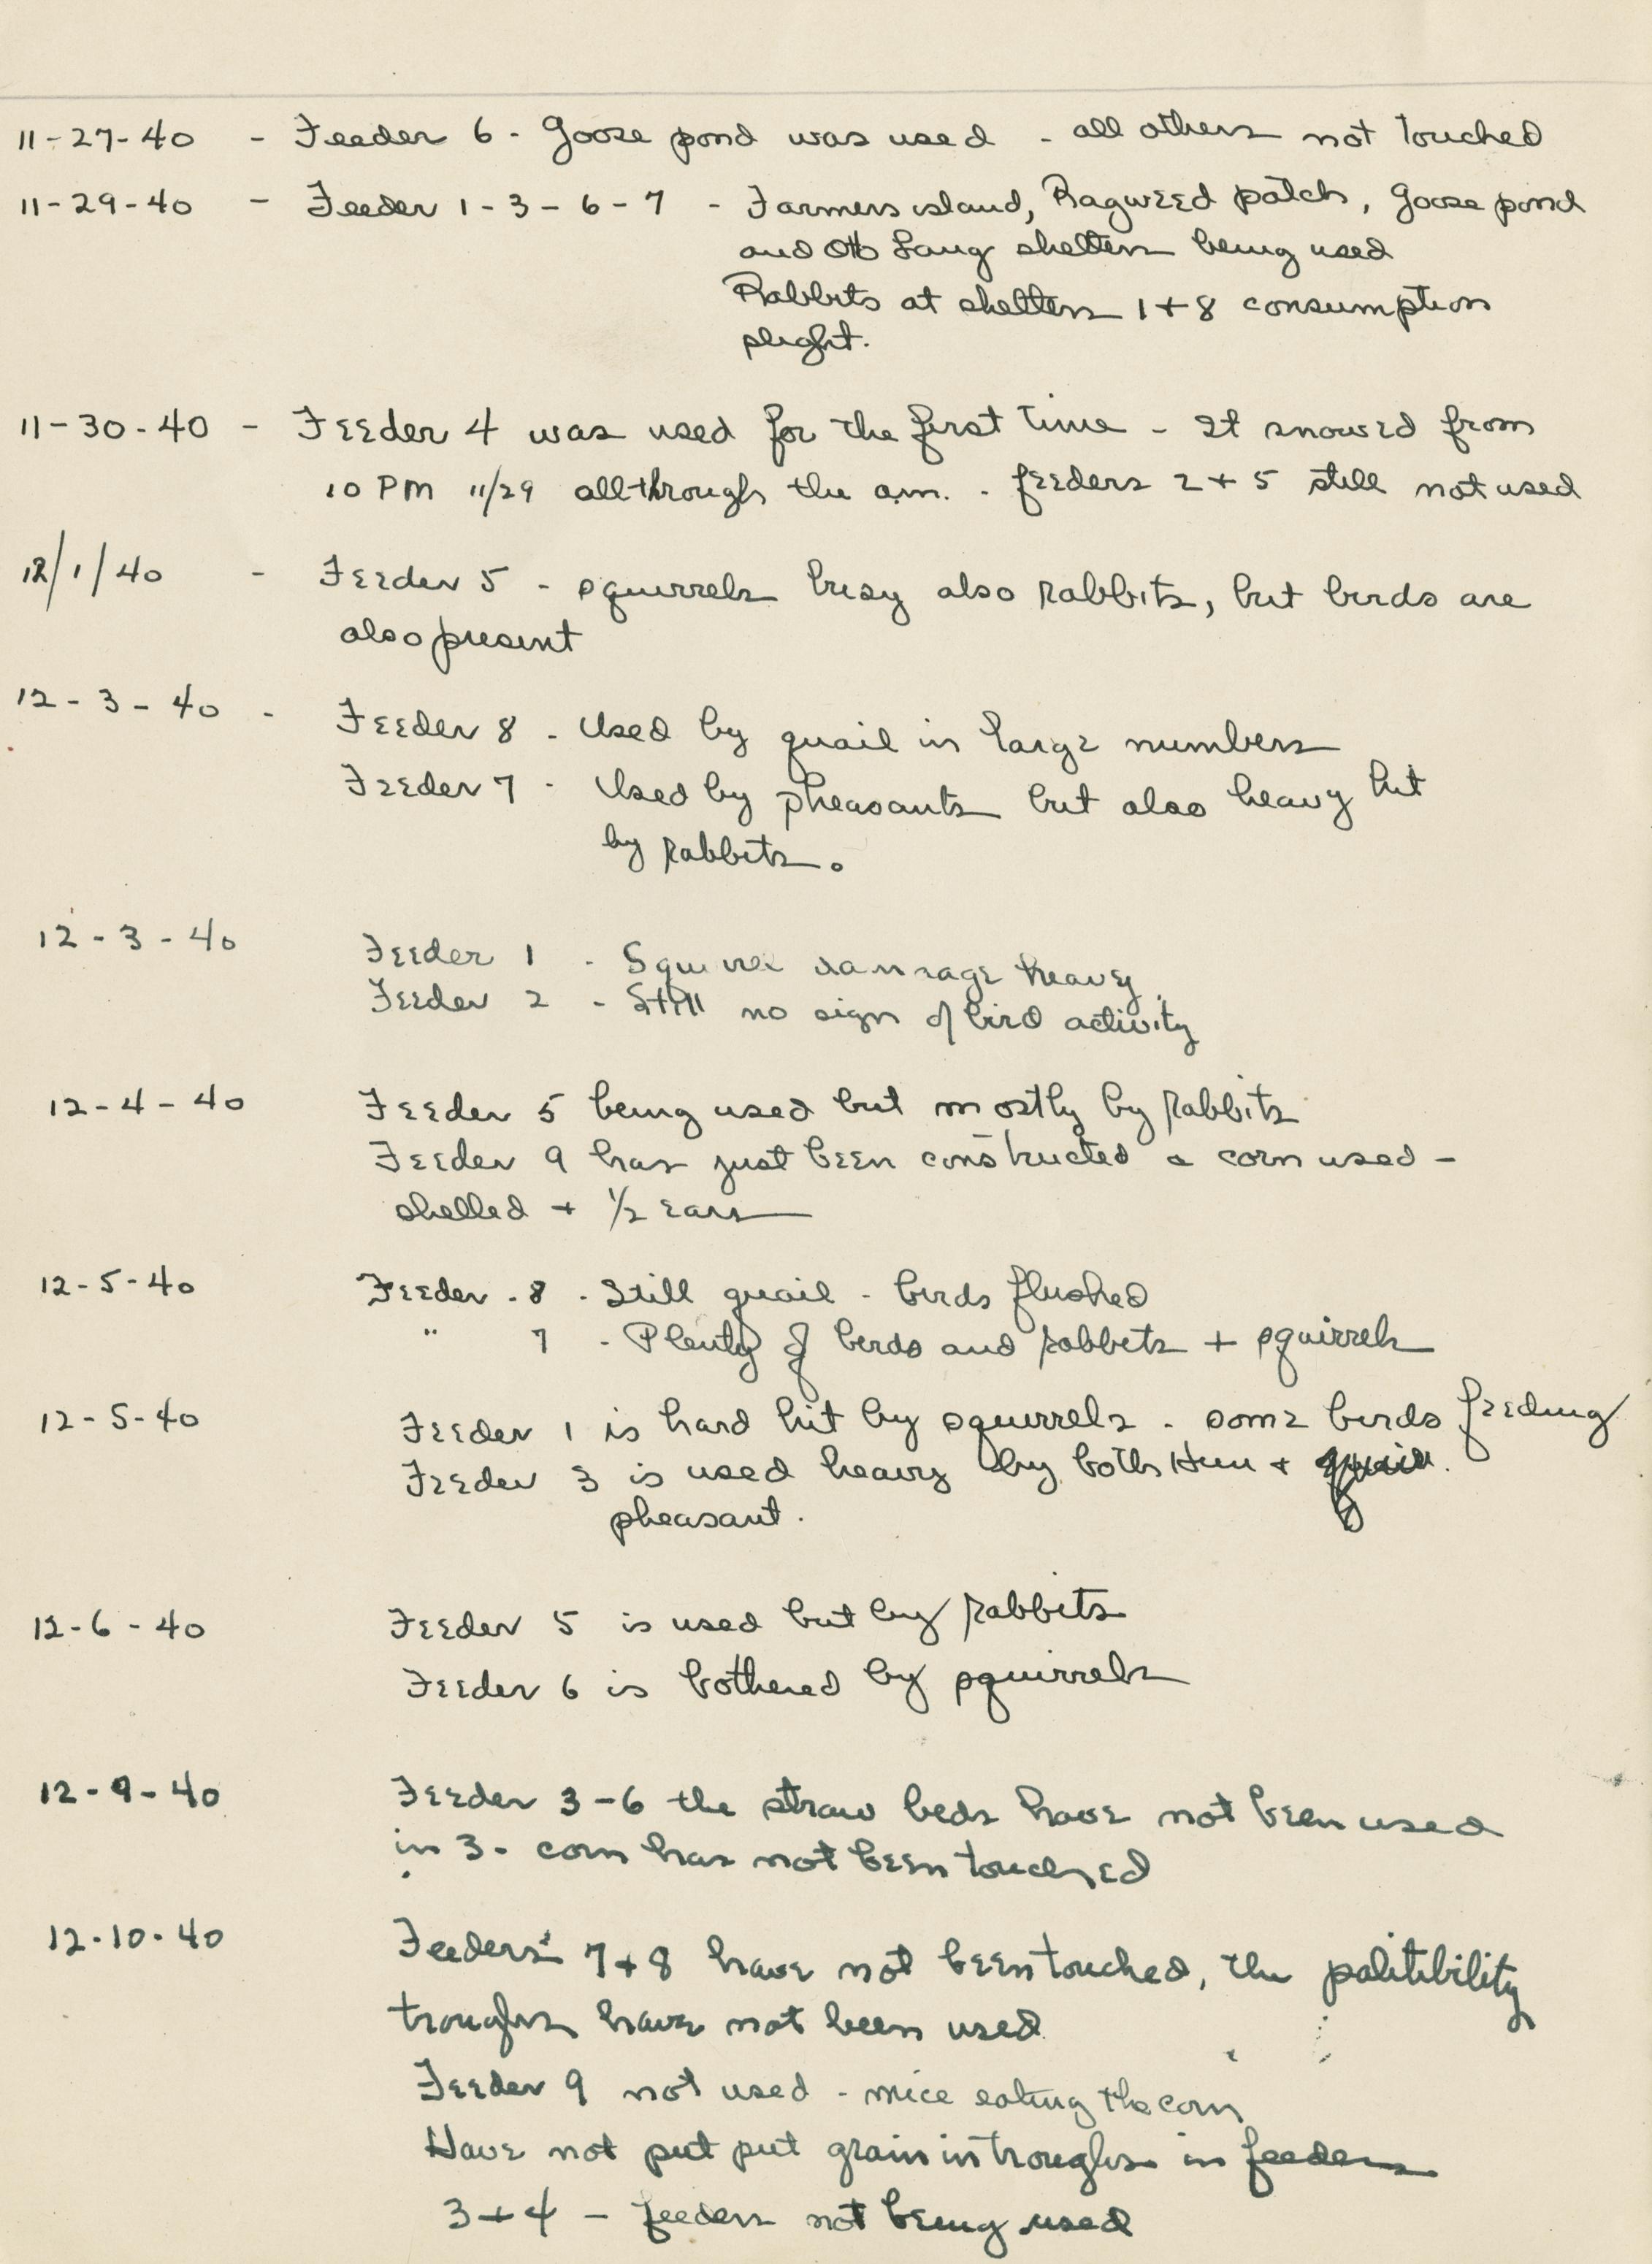 11-27-40 - Feeder 6 - Goose pond was used - all others not touched
11-29-40 - Feeder 1-3-6-7 - Farmers island, Ragweed patch, Goose pond
and Otto Lang shelters being used
Rabbits at shelters 1+8 consumption
slight.
11-30-40 - Feeder 4 was used for the first time - It snowed from
10 PM 11/29 all through the am. - feeders 2+5 still not used
12/1/40 - Feeder 5 - squirrels busy also rabbits, but birds are
also present
12-3-40 - Feeder 8 - Used by quail in large numbers
Feeder 7 - Used by pheasants but also heavy hit
by rabbits.
12-3-40 Feeder 1 - Squirrel damage heavy
Feeder 2 - Still no sign of bird activity
12-4-40 Feeder 5 being used but mostly by rabbits
Feeder 9 has just been constructed & corn used -
shelled + 1/2 ears
12-5-40 Feeder - 8 - Still quail - birds flushed
" 7 - Plenty of birds and rabbits + squirrels
12-5-40 Feeder 1 is hard hit by squirrels - some birds feeding
Feeder 3 is used heavy by both Hun + quail.
pheasant.
12-6-40 Feeder 5 is used but by rabbits
Feeder 6 is bothered by squirrels
12-9-40 Feeder 3-6 the straw beds have not been used
in 3 - corn has not been touched
12-10-40 Feeders 7+8 have not been touched, the palitibility
troughs have not been used
Feeder 9 not used - mice eating the corn
Have not put put grain in troughs in feeders
3+4 - feeders not being used